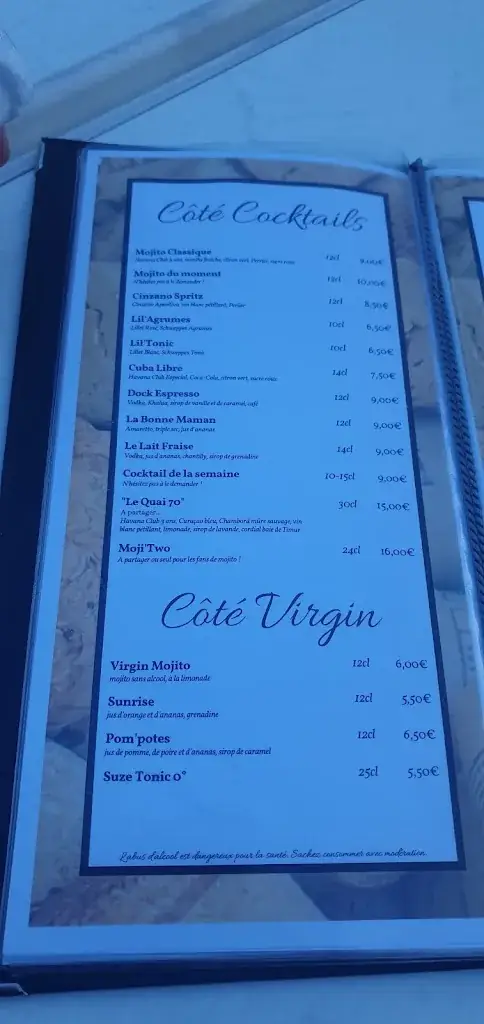 Côté Cocktails
Mojito Classique 12cl 9,00€
Havana Club 3 ans, menthe fraîche, citron vert, Perrier, sucre roux
Mojito du moment 12cl 10,00€
N'hésitez pas à le demander !
Cinzano Spritz 12cl 8,50€
Cinzano Aperitivo, vin blanc pétillant, Perrier
Lil'Agrumes 10cl 6,50€
Lillet Rosé, Schweppes Agrumes
Lil'Tonic 10cl 6,50€
Lillet Blanc, Schweppes Tonic
Cuba Libre 14cl 7,50€
Havana Club Especial, Coca-Cola, citron vert, sucre roux
Dock Espresso 12cl 9,00€
Vodka, Khalua, sirop de vanille et de caramel, café
La Bonne Maman 12cl 9,00€
Amaretto, triple sec, jus d'ananas
Le Lait Fraise 14cl 9,00€
Vodka, jus d'ananas, chantilly, sirop de grenadine
Cocktail de la semaine 10-15cl 9,00€
N'hésitez pas à le demander !
"Le Quai 70" 30cl 15,00€
A partager...
Havana Club 3 ans, Curaçao bleu, Chambord mûre sauvage, vin
blanc pétillant, limonade, sirop de lavande, cordial baie de Timur
Moji'Two 24cl 16,00€
A partager ou seul pour les fans de mojito !
Côté Virgin
Virgin Mojito 12cl 6,00€
mojito sans alcool, à la limonade
Sunrise 12cl 5,50€
jus d'orange et d'ananas, grenadine
Pom'potes 12cl 6,50€
jus de pomme, de poire et d'ananas, sirop de caramel
Suze Tonic 0° 25cl 5,50€
L'abus d'alcool est dangereux pour la santé. Sachez consommer avec modération.